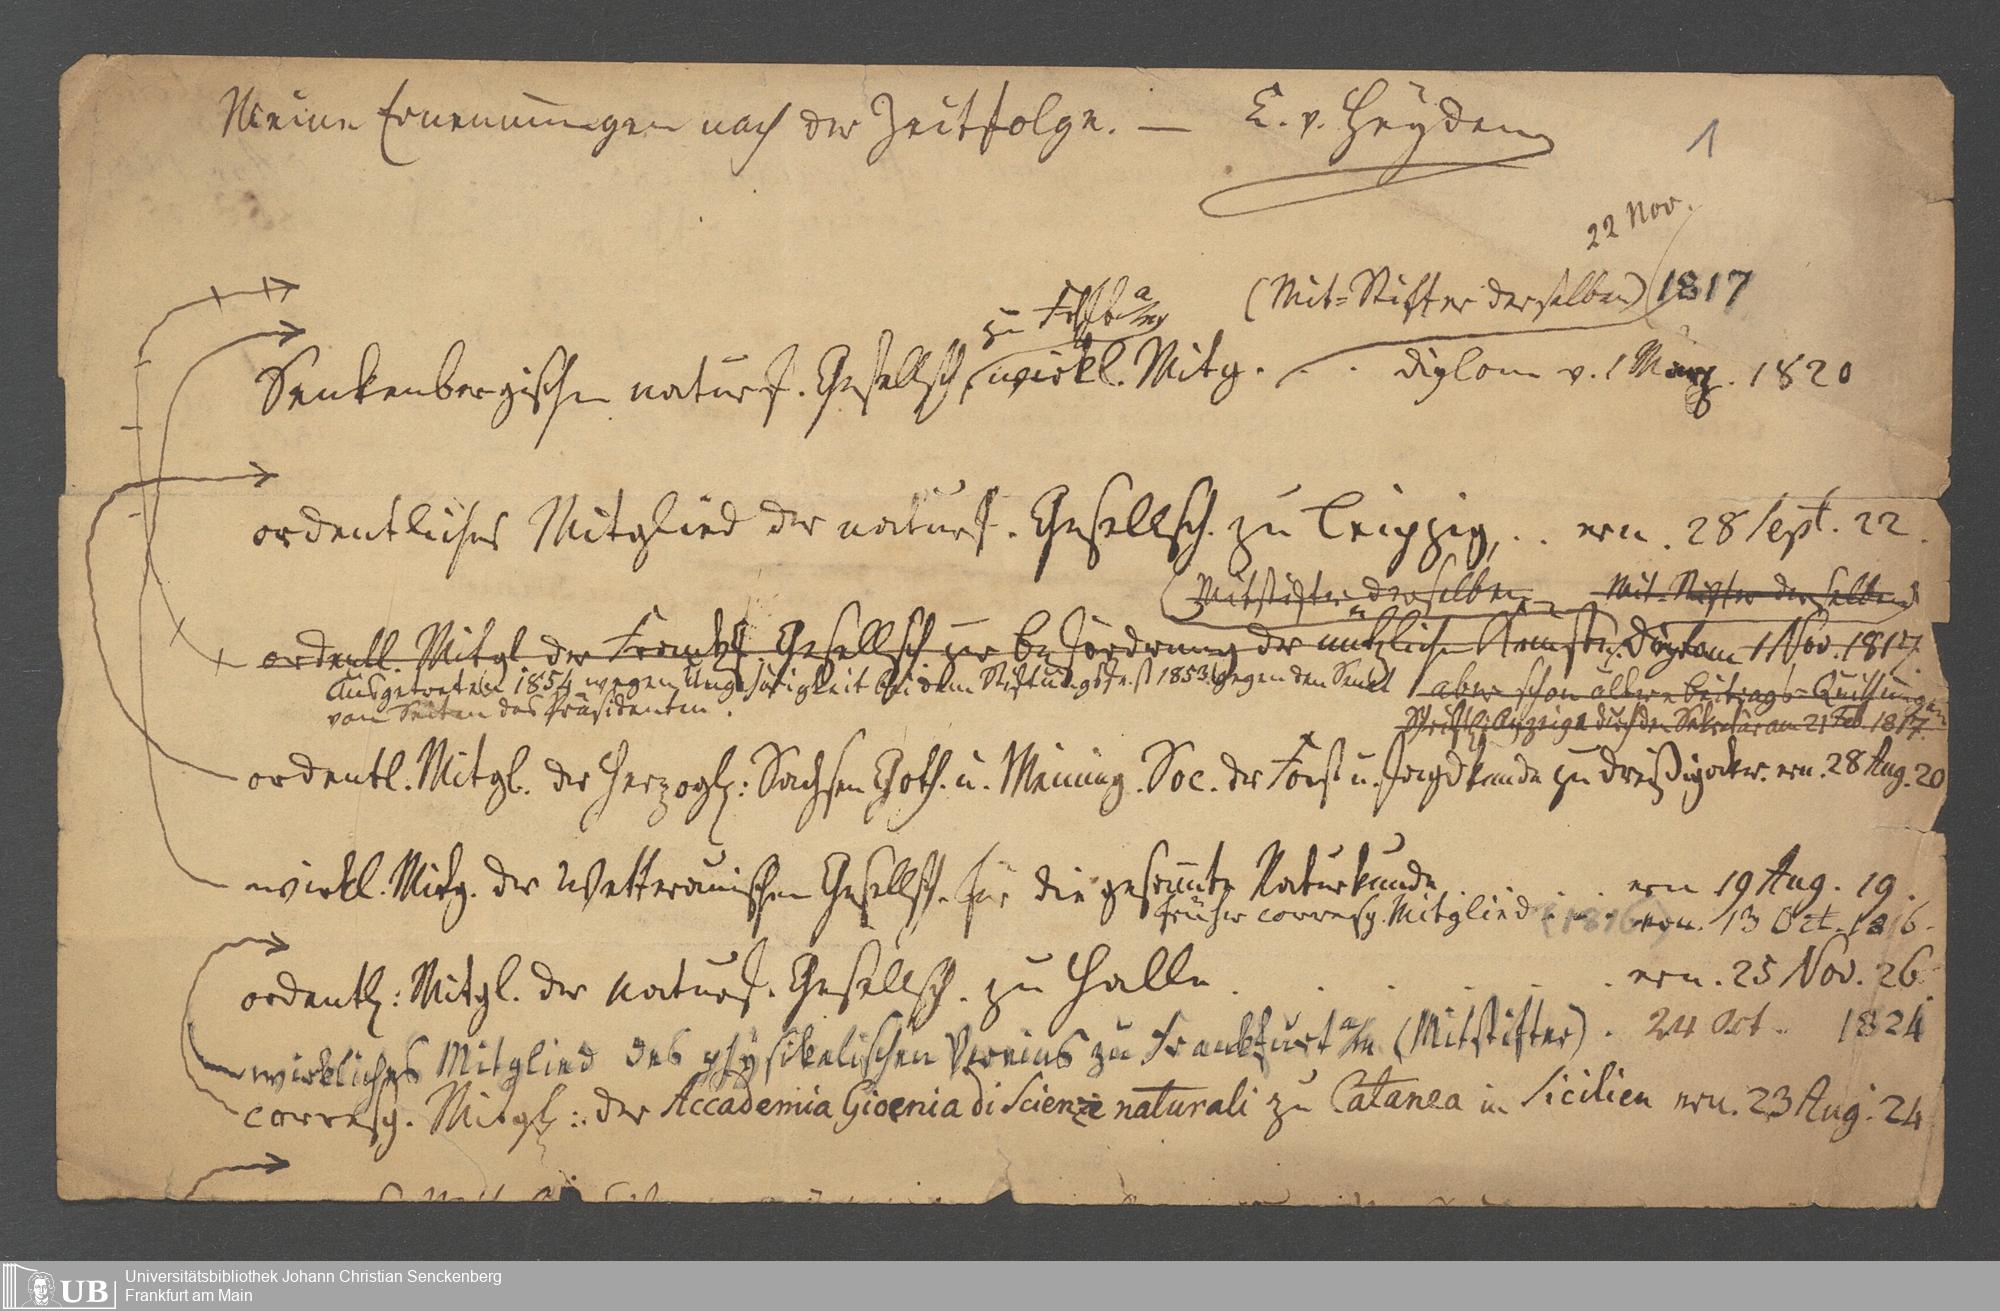 Meine Ernennungen nach der Zeitfolge. — C. v. Heyden
1
22 Nov.
(Mit=Stifter derselben) 1817
zu Frkft a/m
Senkenbergische naturf. Gesellsch. wirkl. Mitg. . . . diplom v. 1 März. 1820
ordentliches Mitglied der naturf. Gesellsch. zu Leipzig, . . ern. 28 Sept. 22.
(Mitstifter derselben Mit=Stifter derselben)
ordentl. Mitgl. der Frankf. Gesellsch. zur Beförderung der nützlichen Künste. Diplom 1 Nov. 1817.
Ausgetreten 1854 wegen Ungehörigkeit bei dem Stiftungsfest 1853 gegen den Senat aber schon ältere Beitrags=Quittungen
von Seiten des Präsidenten.
Schriftl. Anzeige durch den Sekretär am 21 Feb. 1817.
ordentl. Mitgl. der Herzogl: Sachsen Goth. u. Meining. Soc. der Forst u. Jagdkunde zu Dreißigacker. ern. 28 Aug. 20
wirkl. Mitg. der Wetterauischen Gesellsch. für die gesammte Naturkunde . . . . ern 19 Aug. 19.
früher corresp. Mitglied . . . (1816) ern. 13 Oct. 1816.
ordentl: Mitgl. der naturf. Gesellsch. zu Halle . . . . . . ern. 25 Nov. 26.
wirkliches Mitglied des physikalischen Vereins zu Frankfurt a/m (Mitstifter) . 24 Oct. 1824
corresp. Mitgl: der Accademia Gioenia di Scienze naturali zu Catanea in Sicilien ern. 23 Aug. 24
UB
Universitätsbibliothek Johann Christian Senckenberg
Frankfurt am Main